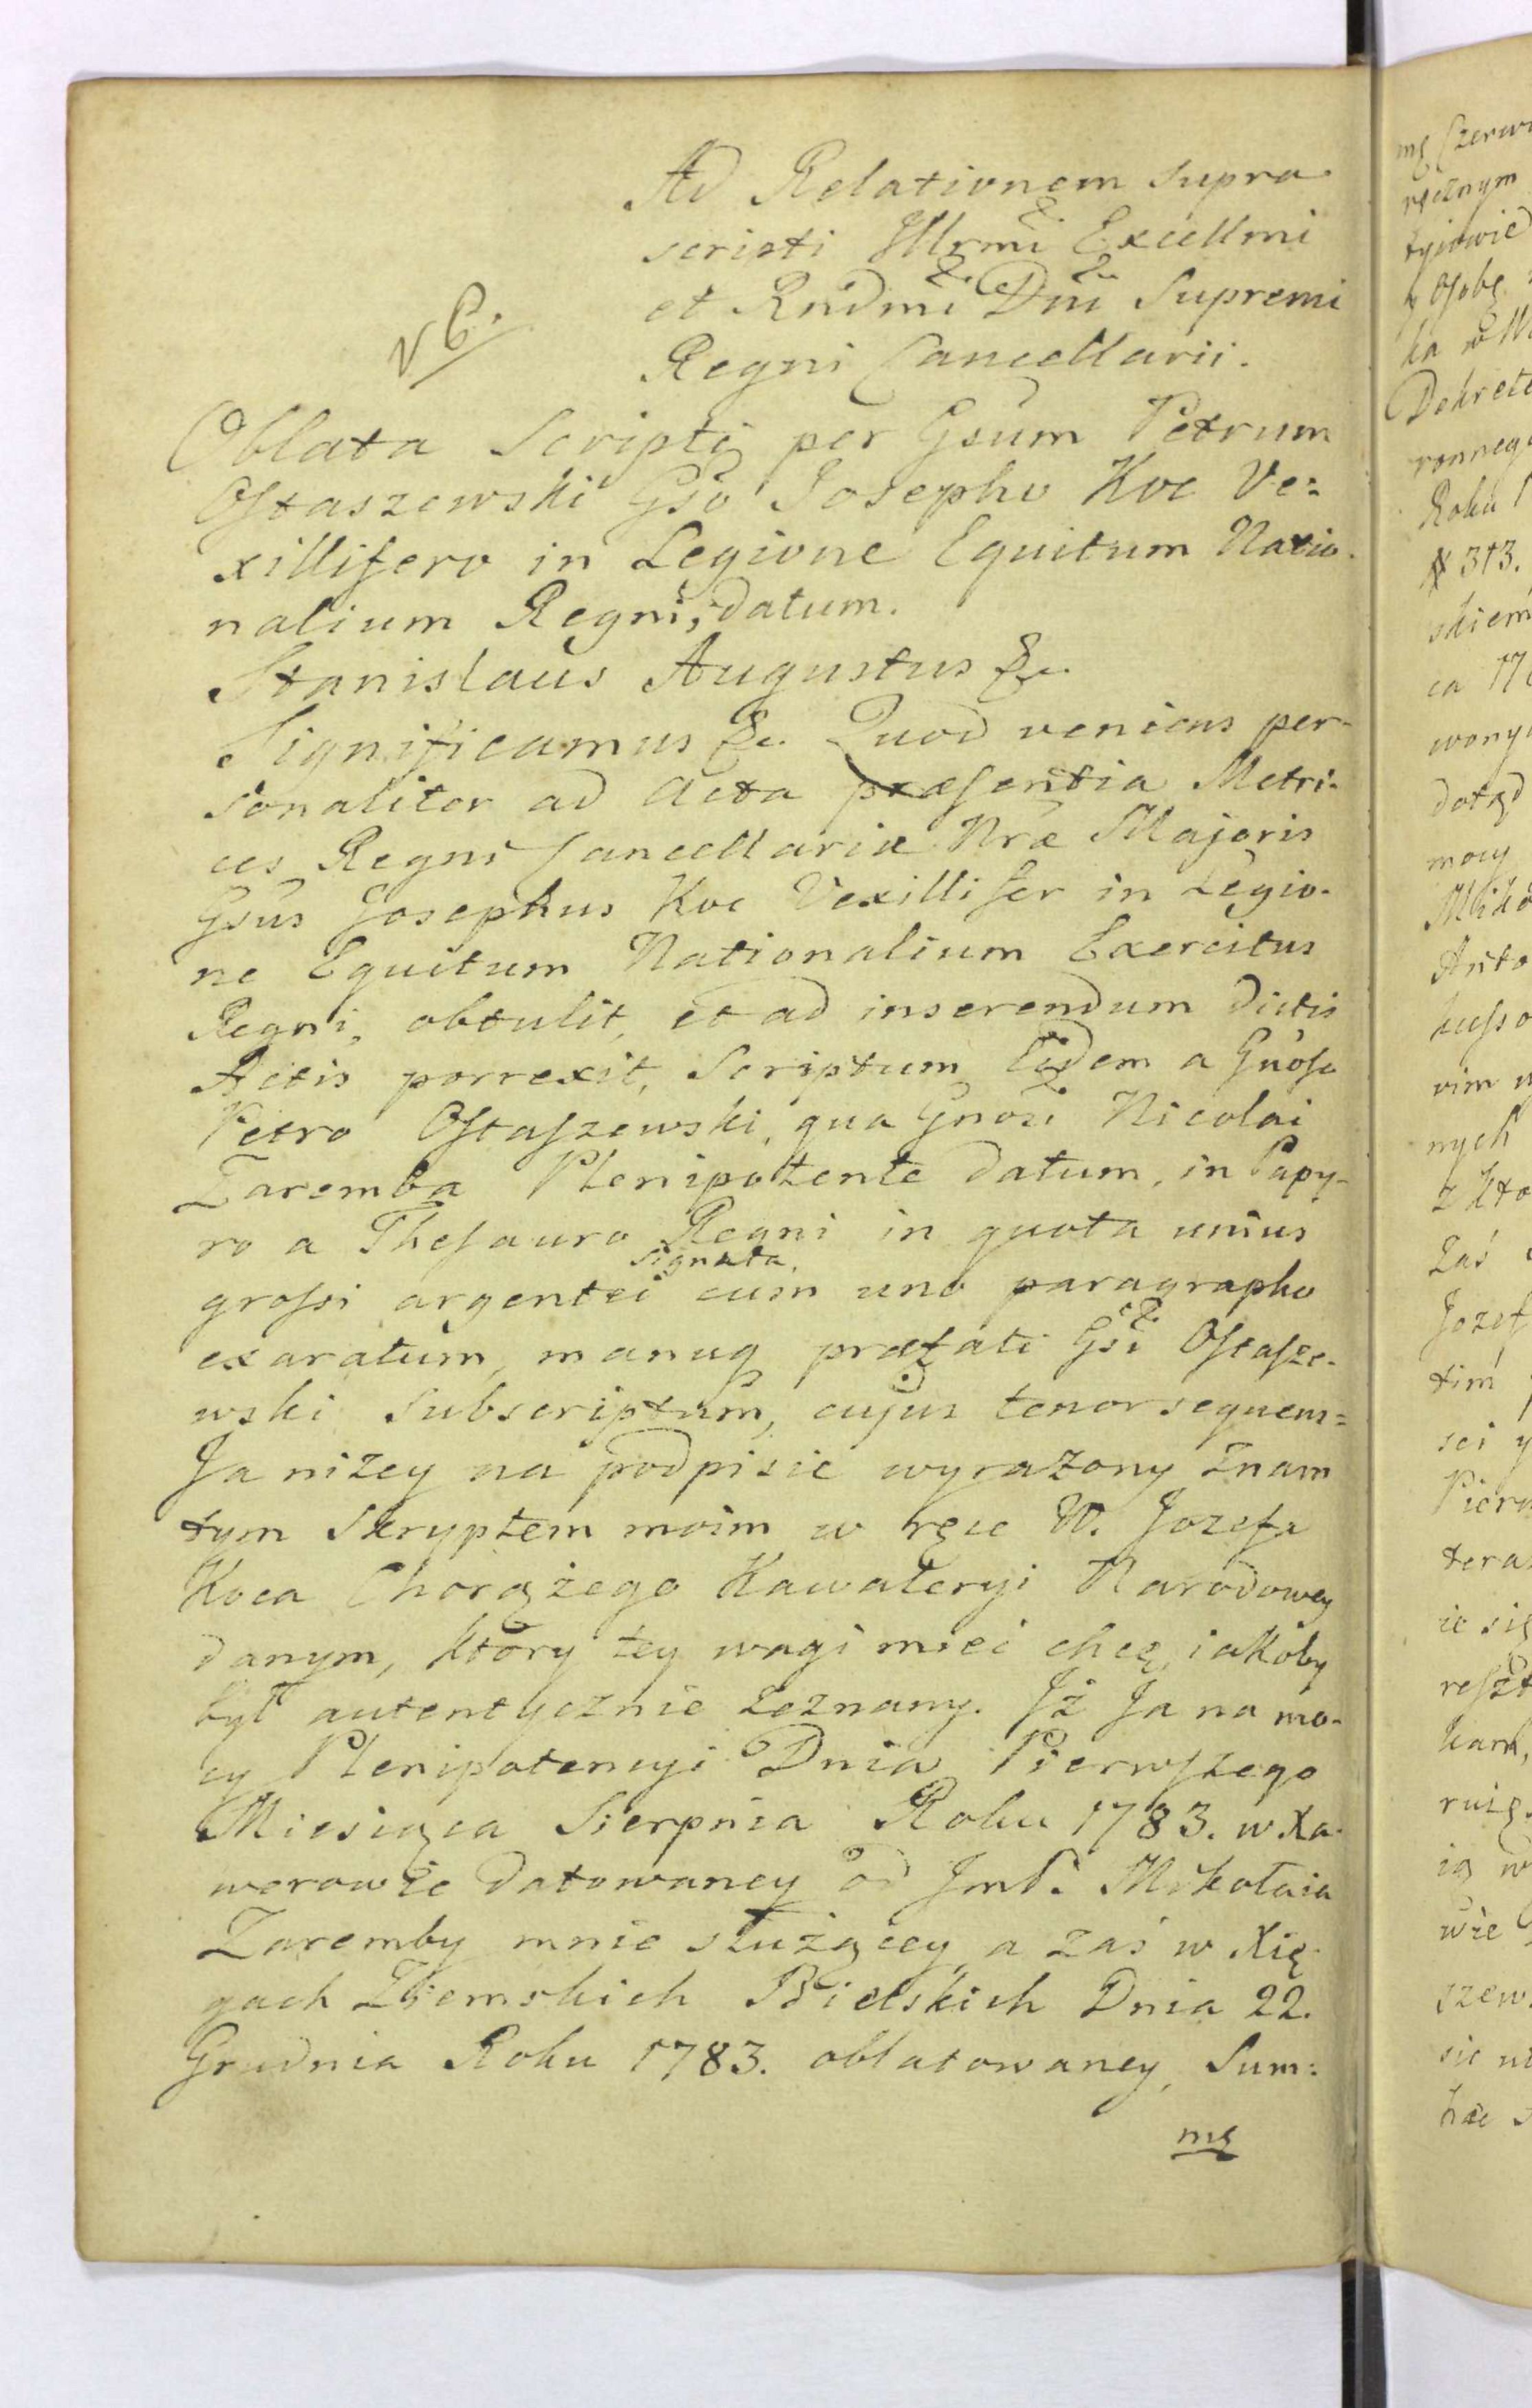 Ad Relationem supra
scripti Illrmi Excellmi
et Rndmi Dni Supremi
Regni Cancellarii.
Oblata Scripti per Gsum Petrum
Ostaszewski Gso Josepho Koc Ve=
xillifero in Legione Equitum Natio-
nalium Regni, datum.
Stanislaus Augustus &c.
Significamus &c. Quod veniens per-
sonaliter ad Acta præsentia Metri-
ces Regni Cancellariæ Nræ Majoris
Gsus Josephus Koc Vexillifer in Legio-
ne Equitum Nationalium Exercitus
Regni, obtulit, et ad inserendum dictis
Actis porrexit, Scriptum Eidem a Gnoso
Petro Ostaszewski, qua Gnosi Nicolai
Zaremba Plenipotente datum, in Papy-
ro a Thesauro Regni in quota unius
signata,
grossi argentei cum uno paragrapho
exaratum, manuq præfati Gsi Ostasze-
wski subscriptum, cujus tenor sequens=
Ja niżey na podpisie wyrażony znam
tym Skryptem moim w ręce W. Jozefa
Koca Chorążego Kawaleryi Narodowey
danym, który tey wagi mieć chcę, iakoby
był autentycznie zeznany. Iż Ja na mo-
cy Plenipotencyi Dnia Pierwszego
Miesiąca Sierpnia Roku 1783. w Xa-
werowie datowaney od JmP. Mikołaia
Zaremby mnie służącey, a zaś w Xię-
gach Ziemskich Bielskich Dnia 22.
Grudnia Roku 1783. oblatowaney, Sum=
mę